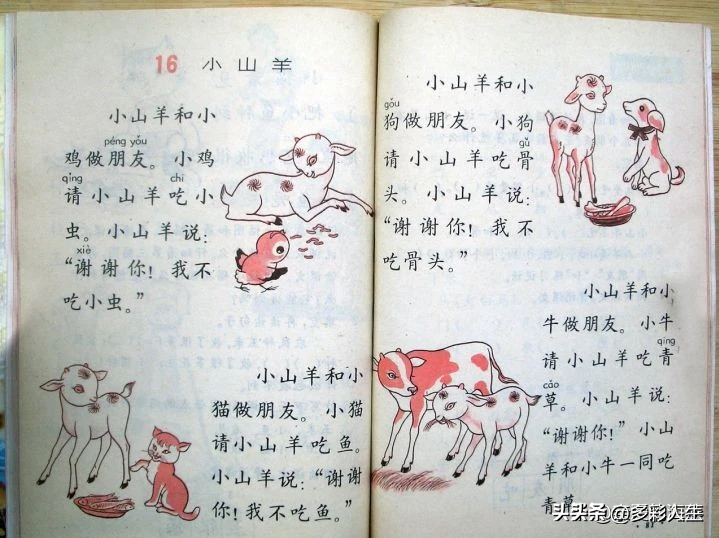 16 小山羊
小山羊和小
péng yǒu
鸡做朋友。小鸡
qǐng chī
请小山羊吃小
虫。小山羊说:
xiè
“谢谢你!我不
吃小虫。”
小山羊和小
猫做朋友。小猫
请小山羊吃鱼。
小山羊说:“谢谢
你!我不吃鱼。”
小山羊和小
gǒu
狗做朋友。小狗
gǔ
请小山羊吃骨
头。小山羊说:
“谢谢你!我不
吃骨头。”
小山羊和小
牛做朋友。小牛
qīng
请小山羊吃青
cǎo
草。小山羊说:
“谢谢你!”小山
羊和小牛一同吃
青草
头条号@多彩人生